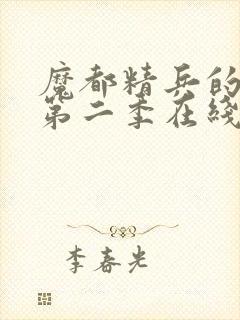 魔都精兵的
第二季在线
李春光